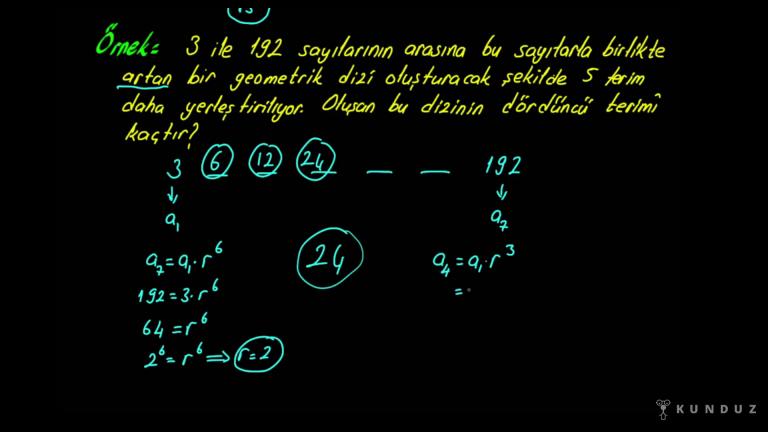 Örnek: 3 ile 192 sayılarının arasına bu sayılarla birlikte
artan bir geometrik dizi oluşturacak şekilde 5 terim
daha yerleştiriliyor. Oluşan bu dizinin dördüncü terimi
kaçtır?
3 6 12 24 _ _ 192
↓ ↓
a₁ a₇
a₇ = a₁ · r⁶
192 = 3 · r⁶
64 = r⁶
2⁶ = r⁶ ⇒ r = 2
24
a₄ = a₁ · r³
= ·
KUNDUZ